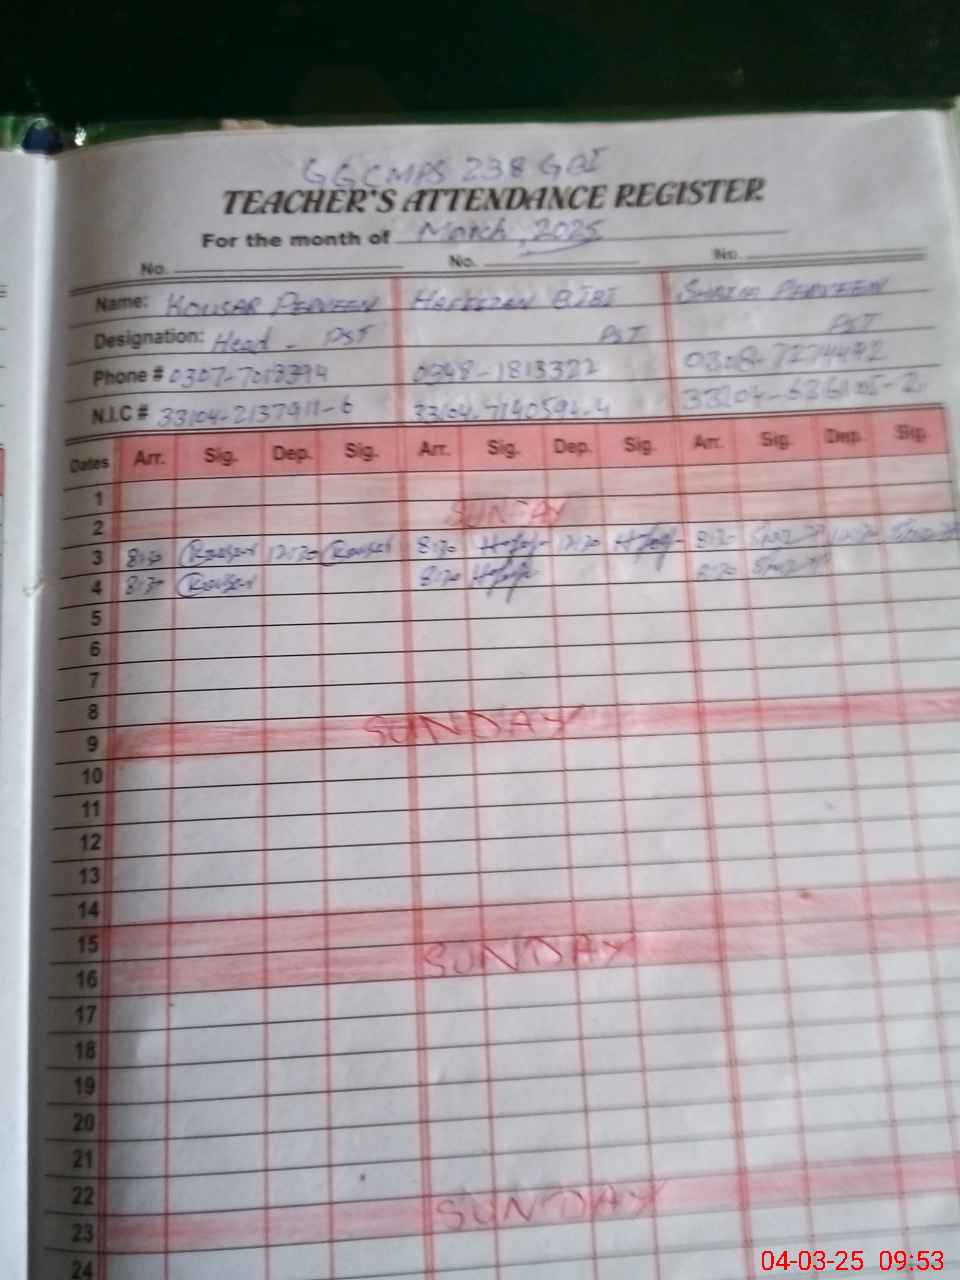 GGCMPS 238 GBI
TEACHER'S ATTENDANCE REGISTER
For the month of March, 2025
No. No. No.
Name: KOUSAR PERVEEN BIBI PERVEEN
Designation: Head - PST PST PST
Phone # 0307-7013394 0348-1813322 0308-7274492
N.I.C # 33104-2137911-6
Dates Arr. Sig. Dep. Sig. Arr. Sig. Dep. Sig. Arr. Sig. Dep. Sig.
1
2 SUNDAY
3 8:30 Kousar 12:30 Kousar 8:30 12:30 8:30 12:30
4 8:30 Kousar 8:30 8:30
5
6
7
8
9 SUNDAY
10
11
12
13
14
15
16 SUNDAY
17
18
19
20
21
22
23 SUNDAY
24
04-03-25 09:53